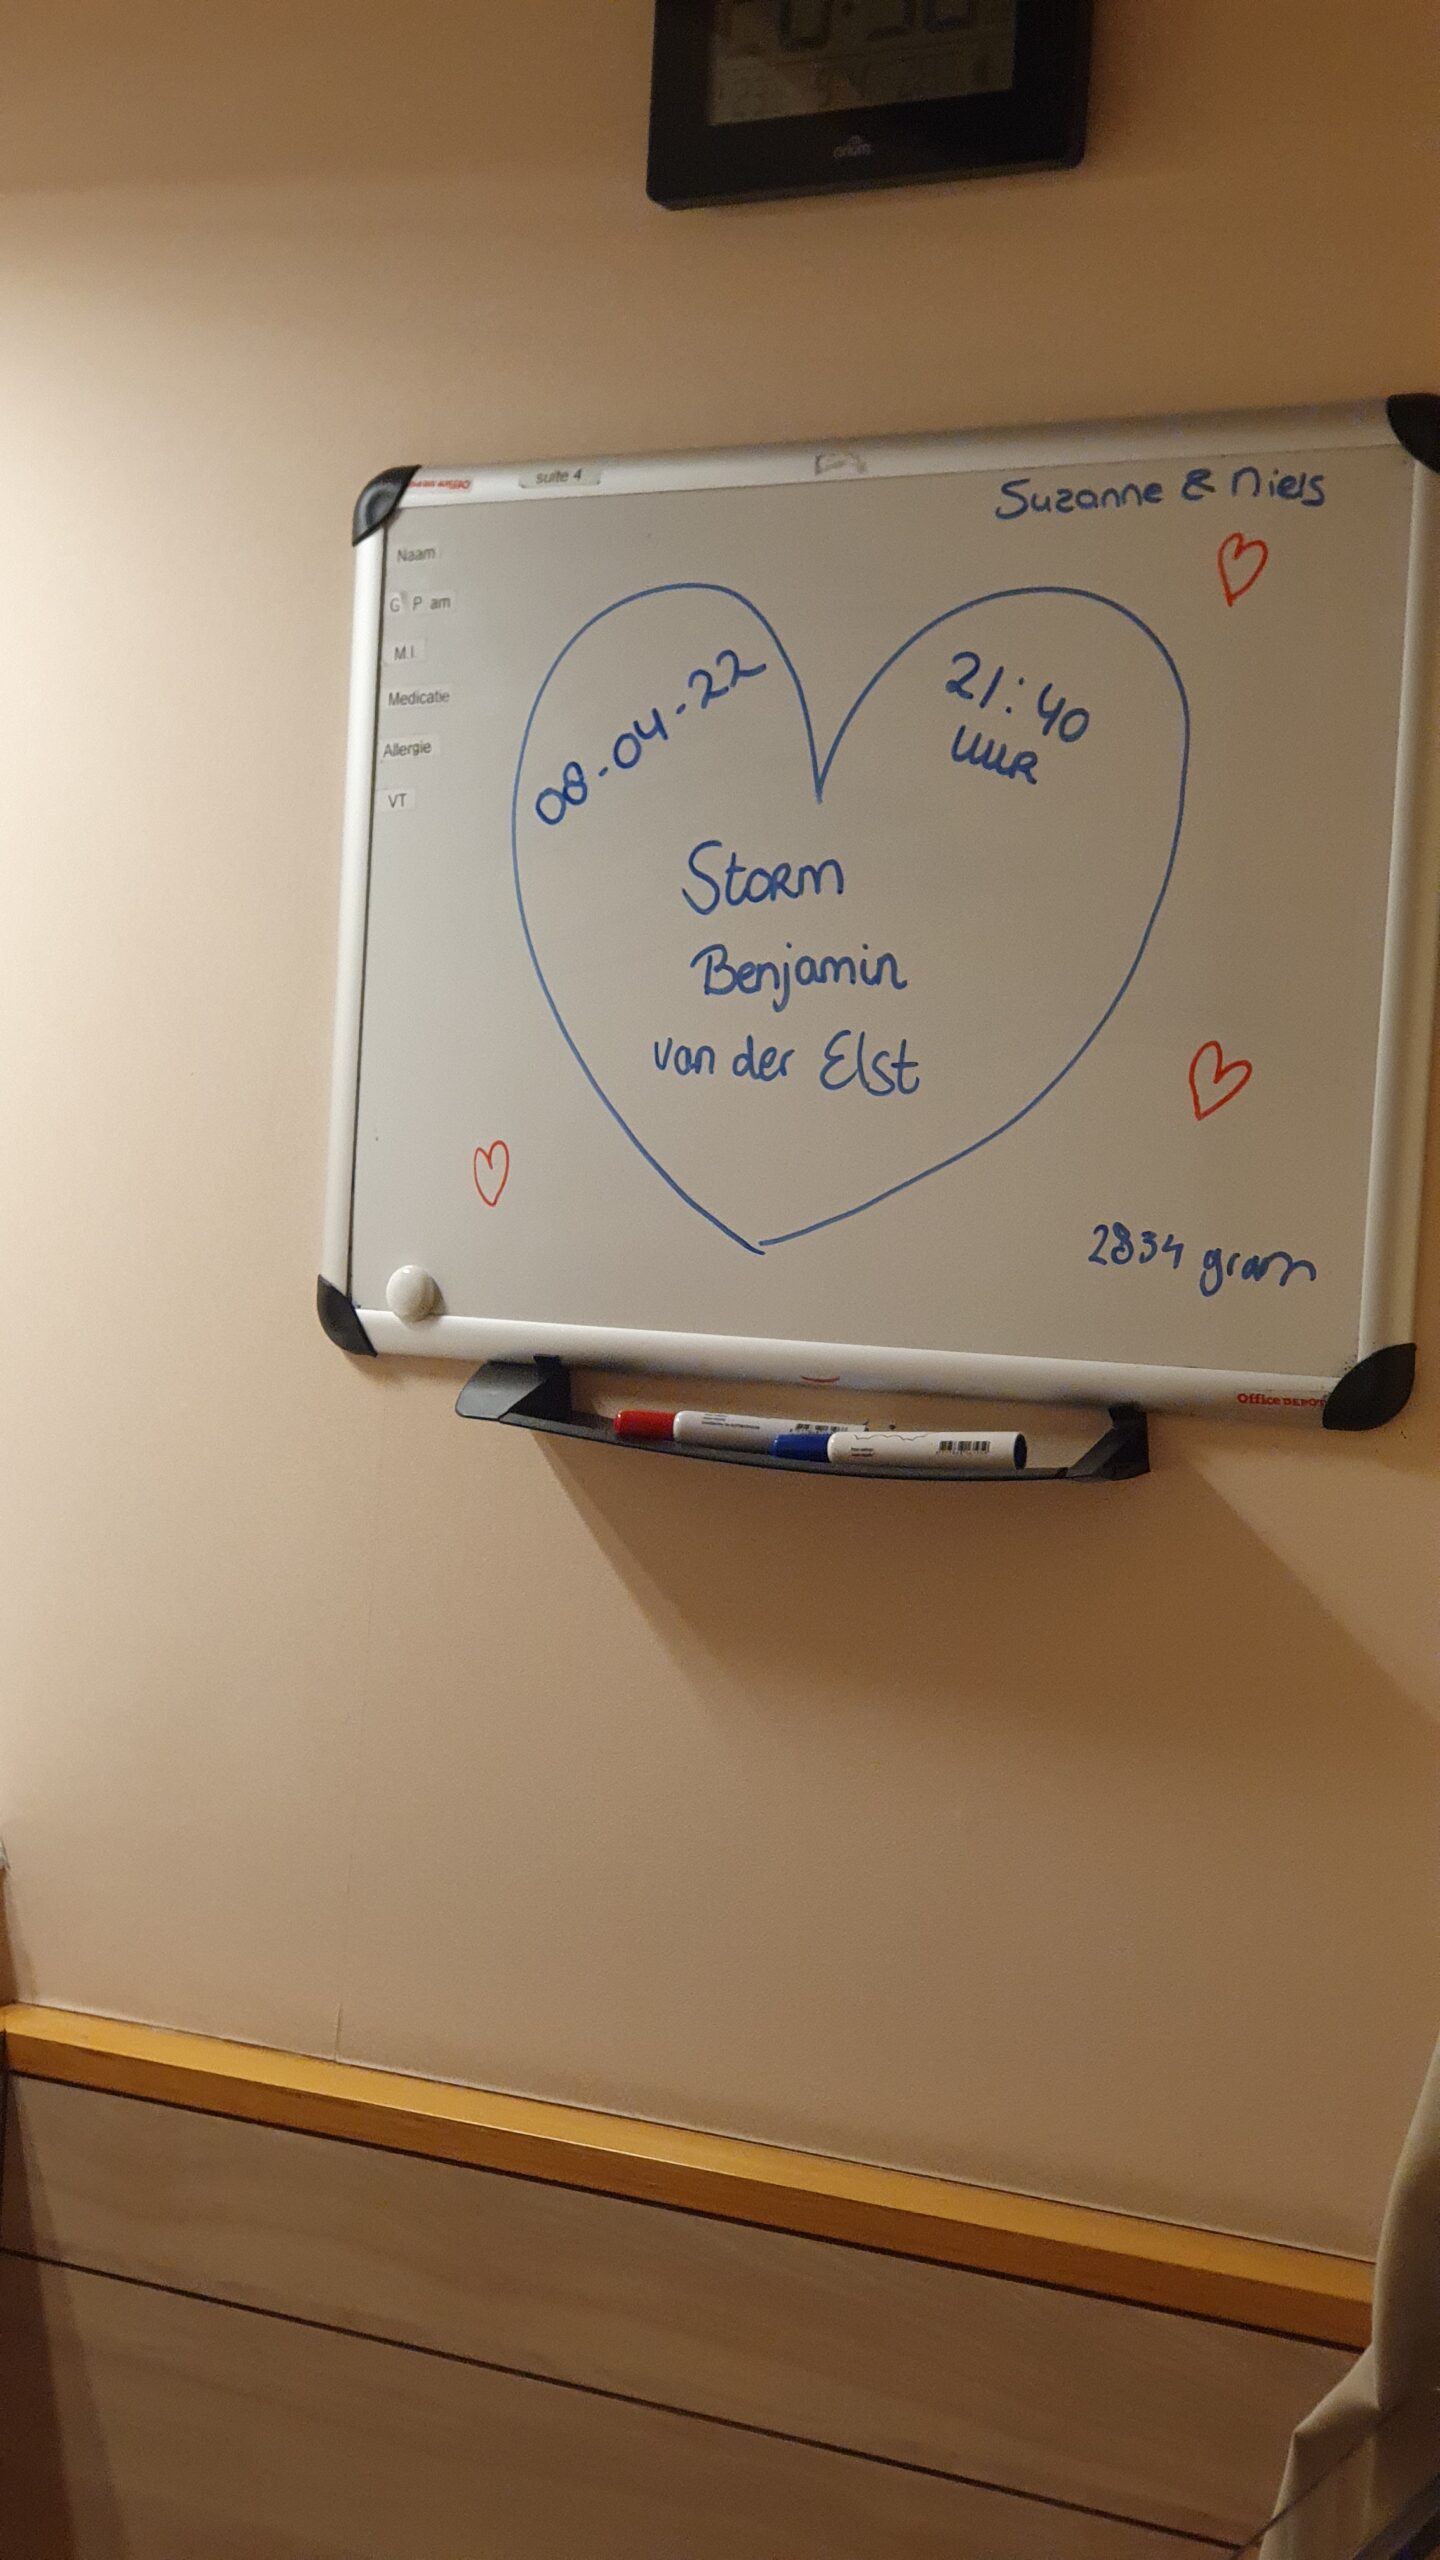 suite 4
Suzanne & Niels
Naam
G P am
M.I.
Medicatie
Allergie
VT
08-04-22
21:40
uur
Storm
Benjamin
van der Elst
2834 gram
Office DEPOT